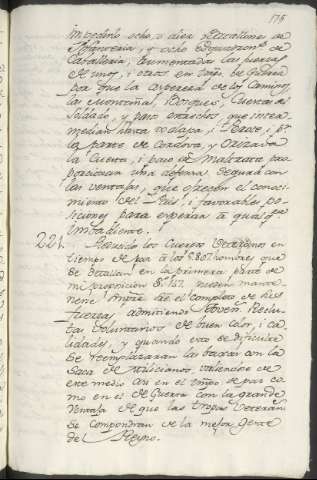 176
impedirlo ocho, o diez Batallones de
Infanteria, y ocho Esquadron.s de
Cavalleria, aumentadas las fuerzas
de unos, i otros en tiempo de Guerra
por que la aspereza de los Caminos,
las Montañas, Bosques, Cuestas del
Soldado, y paso estrechos que inter
median hasta Xalapa, i Perote, i p.r
la parte de Cordova, y Orizava
la Cuesta, i paso de Maltrata pro
porcionan una defensa segura con
las ventajas, que ofrecen el conoci
miento del Pais, i favorables po
siciones para esperar a qualq.r
Imbadiente.
221. los Cuerpos Veteranos en
tiempo de paz a los hombres que
se detallan en la primera parte de
mi proposicion deven mante
nerse siempre en el completo de sus
fuerzas, admitiendo Joven Reclu
tas Voluntarios de buen color, i ca
lidades, y quando esto se dificulte
se reemplazaran las baxas con la
saca de Milicianos, valiendose de
este medio asi en el tiempo de paz co
mo en el de Guerra con la grande
ventaja de que las tropas Veteranas
se compondran de la mejor gente
del Reyno.